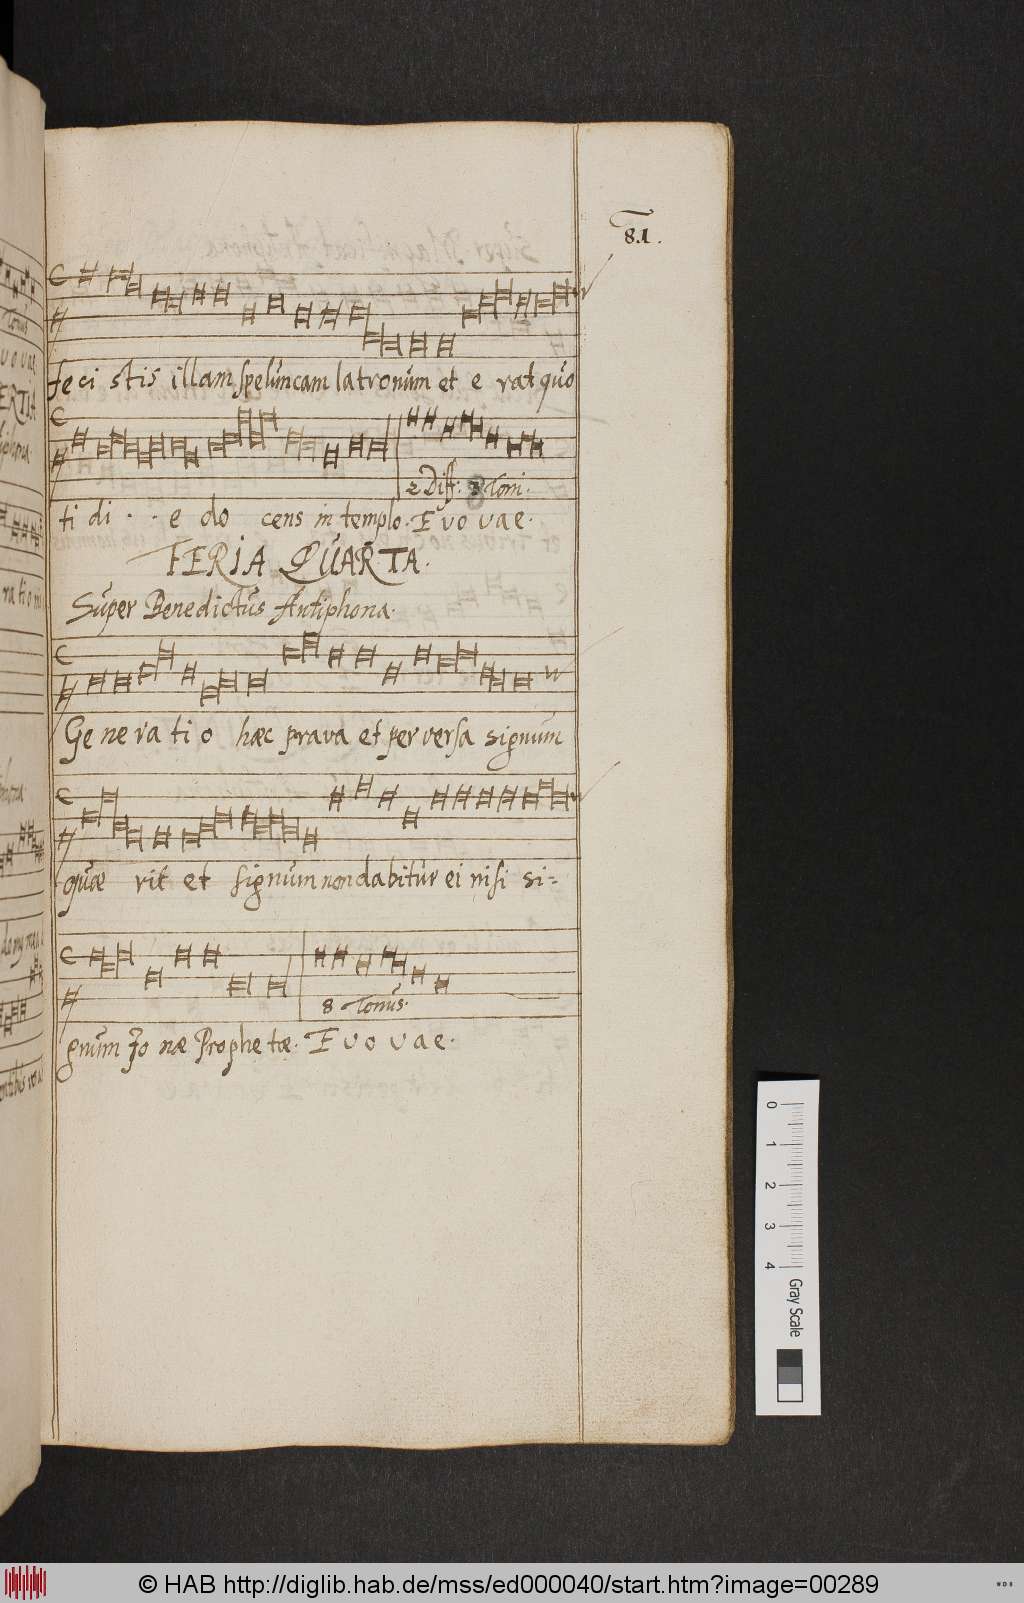 81.
feci stis illam speluncam latronum et e rat quo
2 Diff: 8 Toni.
ti di - - e do cens in templo. E v o v a e.
FERIA QUARTA.
Super Benedictus Antiphona.
Ge ne ra ti o hæc prava et per versa signum
quæ rit et signum non dabitur ei nisi si-
8 Tonus.
gnum Jo næ Prophe tæ. E v o v a e.
0 1 2 3 4 Gray Scale
© HAB http://diglib.hab.de/mss/ed000040/start.htm?image=00289